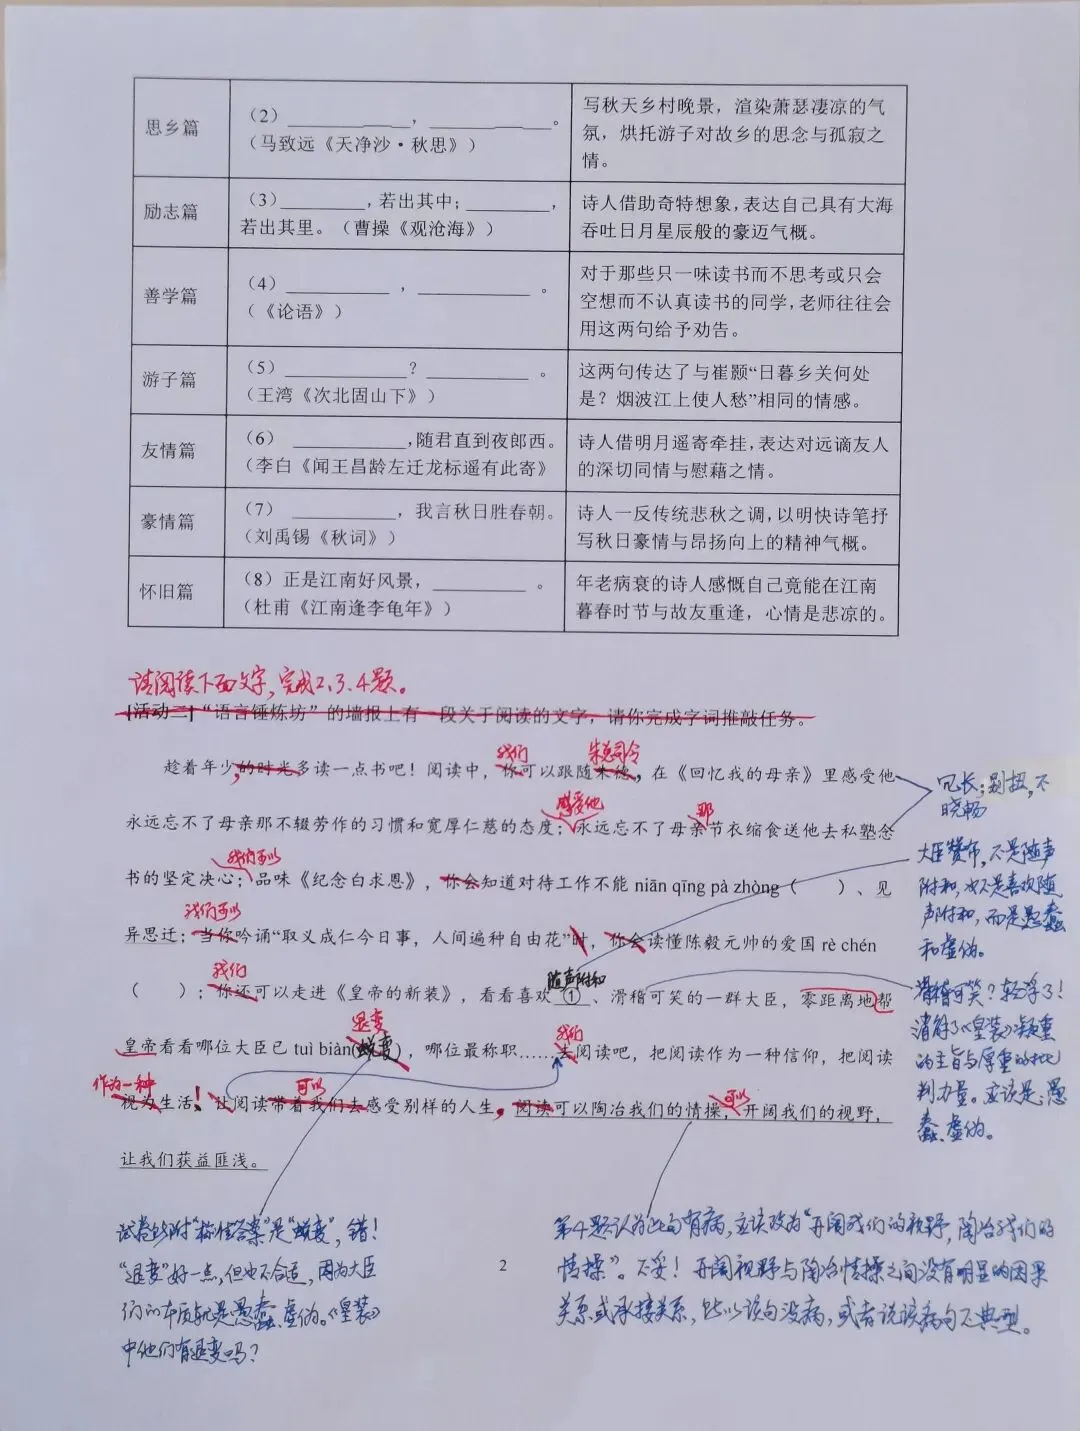 思乡篇
(2)____________，____________。
（马致远《天净沙·秋思》）
写秋天乡村晚景，渲染萧瑟凄凉的气
氛，烘托游子对故乡的思念与孤寂之
情。
励志篇
(3)________，若出其中；________，
若出其里。（曹操《观沧海》）
诗人借助奇特想象，表达自己具有大海
吞吐日月星辰般的豪迈气概。
善学篇
(4)__________，__________。
（《论语》）
对于那些只一味读书而不思考或只会
空想而不认真读书的同学，老师往往会
用这两句给予劝告。
游子篇
(5)____________？__________。
（王湾《次北固山下》）
这两句传达了与崔颢“日暮乡关何处
是？烟波江上使人愁”相同的情感。
友情篇
(6)__________，随君直到夜郎西。
（李白《闻王昌龄左迁龙标遥有此寄》
诗人借明月遥寄牵挂，表达对远谪友人
的深切同情与慰藉之情。
豪情篇
(7)__________，我言秋日胜春朝。
（刘禹锡《秋词》）
诗人一反传统悲秋之调，以明快诗笔抒
写秋日豪情与昂扬向上的精神气概。
怀旧篇
(8)正是江南好风景，__________。
（杜甫《江南逢李龟年》）
年老病衰的诗人感慨自己竟能在江南
暮春时节与故友重逢，心情是悲凉的。
请阅读下面文字，完成2、3、4题。
[活动二]“语言锤炼坊”的墙报上有一段关于阅读的文字，请你完成字词推敲任务。
我们 朱总司令
趁着年少，的时光多读一点书吧！阅读中，你可以跟随朱德，在《回忆我的母亲》里感受他
感受他 那
永远忘不了母亲那不辍劳作的习惯和宽厚仁慈的态度；永远忘不了母亲节衣缩食送他去私塾念
我们可以
书的坚定决心；品味《纪念白求恩》，你会知道对待工作不能 niān qīng pà zhòng（ ）、见
我们可以
异思迁；当你吟诵“取义成仁今日事，人间遍种自由花”时，你会读懂陈毅元帅的爱国 rè chén
我们 随声附和
（ ）；你还可以走进《皇帝的新装》，看看喜欢 ① 、滑稽可笑的一群大臣，零距离地帮
退变 我们
皇帝看看哪位大臣已 tuì biàn(蜕变)，哪位最称职……去阅读吧，把阅读作为一种信仰，把阅读
作为一种 可以 可以
视为生活！让阅读带着我们去感受别样的人生，阅读可以陶冶我们的情操，开阔我们的视野，
让我们获益匪浅。
冗长；别扭，不
晓畅
大臣赞布，不是随声
附和，也不是喜欢随
声附和，而是愚蠢
和虚伪。
滑稽可笑？轻浮了！
消解了《皇装》凝重
的主旨与厚重的批
判力量。应该是：愚
蠢、虚伪。
试卷所附“标准答案”是“蜕变”，错！
“退变”好一点，但也不合适，因为大臣
们的本质就是愚蠢、虚伪。《皇装》
中他们有退变吗？
2
第4题认为此句有病，应该改为“开阔我们的视野，陶冶我们的
情操”。不妥！开阔视野与陶冶情操之间没有明显的因果
关系或承接关系，所以该句没病，或者说该病句不典型。